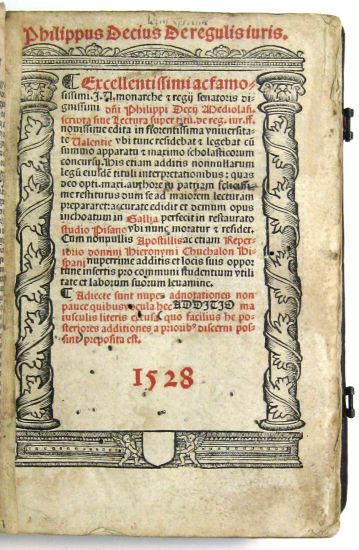 Philippus Decius De regulis iuris.
Excellentissimi ac famo-
sissimi. J. U. monarche & regij senatoris di
gnissimi dñi Philippi Decij Mediolañ.
scripta siue Lectura super titu. de reg. iur. ff.
nouissime edita in florentissima vniuersita
te Valentie vbi tunc residebat & legebat cũ
summo apparatu & maximo scholasticorum
concursu. His etiam additis nonnullarum
legũ eiusdẽ tituli interpretationibus: quas
deo opti. maxi. authore in patriam felicissi
me restitutus dum se ad maiorem lecturam
prepararet: accurate edidit et demum opus
inchoatum in Gallia perfecit in restaurato
studio Pisano vbi nunc moratur & residet.
Cum nonnullis Apostillis ac etiam Reper-
torio domini Hieronymi Chuchalon His
pani nuperrime additis et locis suis oppor
tune insertis pro communi studentium vtili
tate et laborum suorum leuamine.
Adiecte sunt nuper adnotationes non
pauce quibus vocula hec ADDITIO ma
iusculis literis excusa, quo facilius he po
steriores additiones a priorib⁹ discerni pos
sint preposita est.
1528